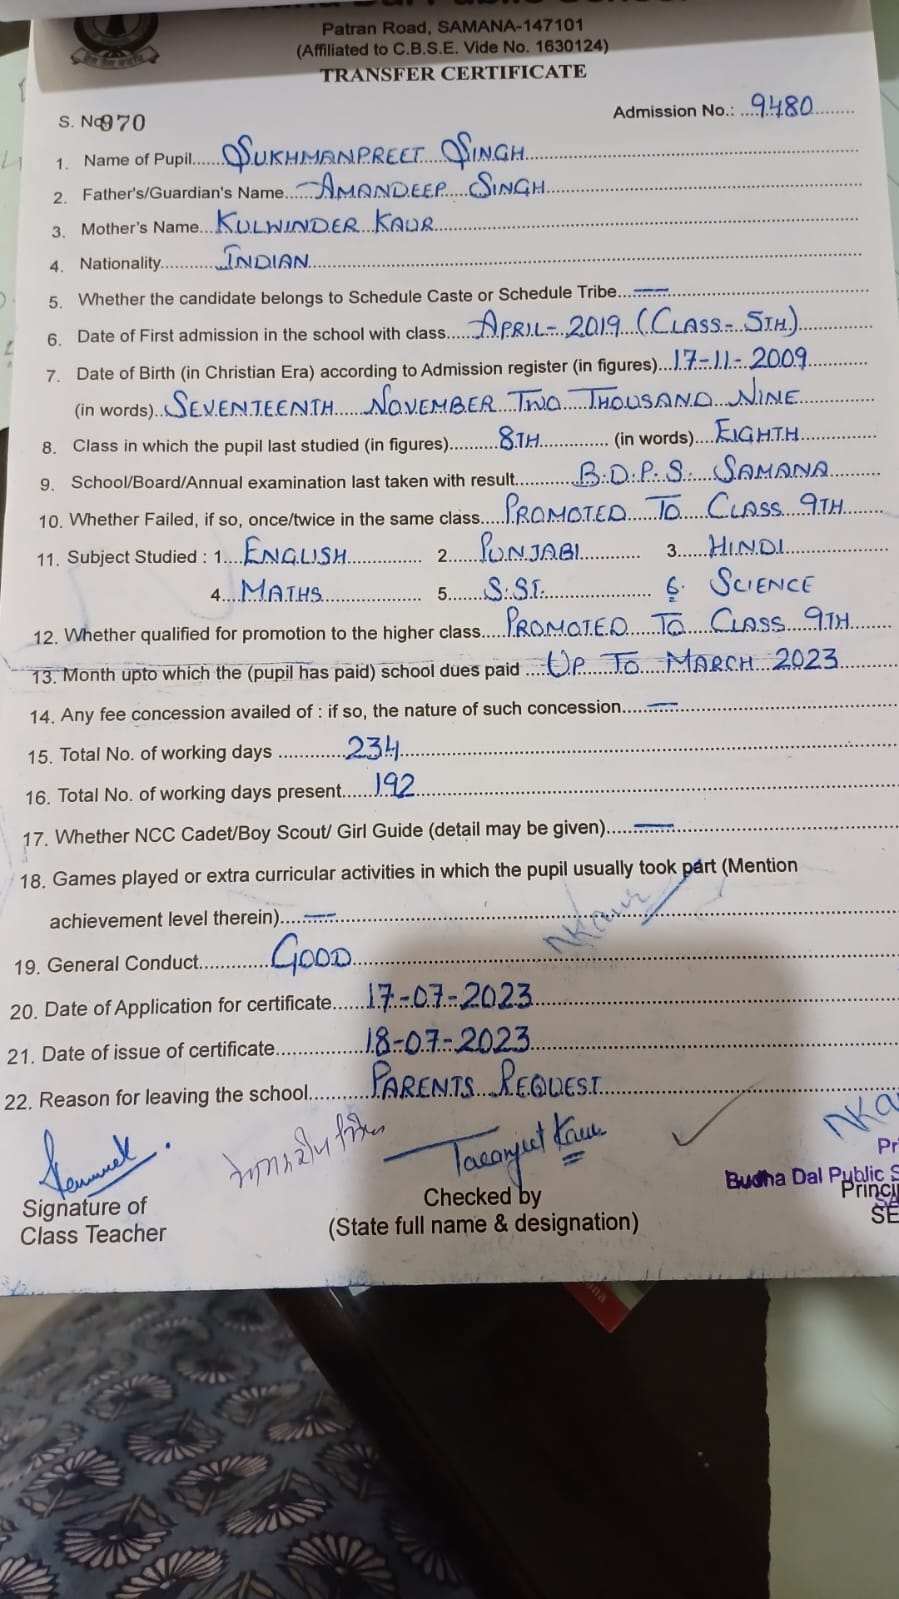 Patran Road, SAMANA-147101
(Affiliated to C.B.S.E. Vide No. 1630124)
TRANSFER CERTIFICATE
S. No 970 Admission No.: 9480
1. Name of Pupil SUKHMANPREET SINGH
2. Father's/Guardian's Name AMANDEEP SINGH
3. Mother's Name KULWINDER KAUR
4. Nationality INDIAN
5. Whether the candidate belongs to Schedule Caste or Schedule Tribe —
6. Date of First admission in the school with class APRIL-2019 (CLASS-5TH)
7. Date of Birth (in Christian Era) according to Admission register (in figures) 17-11-2009
(in words) SEVENTEENTH NOVEMBER TWO THOUSAND NINE
8. Class in which the pupil last studied (in figures) 8TH (in words) EIGHTH
9. School/Board/Annual examination last taken with result B.D.P.S. SAMANA
10. Whether Failed, if so, once/twice in the same class PROMOTED TO CLASS 9TH
11. Subject Studied : 1 ENGLISH 2 PUNJABI 3 HINDI
4 MATHS 5 S.ST. 6. SCIENCE
12. Whether qualified for promotion to the higher class PROMOTED TO CLASS 9TH
13. Month upto which the (pupil has paid) school dues paid UP TO MARCH 2023
14. Any fee concession availed of : if so, the nature of such concession —
15. Total No. of working days 234
16. Total No. of working days present 192
17. Whether NCC Cadet/Boy Scout/ Girl Guide (detail may be given) —
18. Games played or extra curricular activities in which the pupil usually took part (Mention
achievement level therein) —
NKaur
19. General Conduct GOOD
20. Date of Application for certificate 17-07-2023
21. Date of issue of certificate 18-07-2023
22. Reason for leaving the school PARENTS REQUEST
Taranjeet Kaur NKa
Pr
Budha Dal Public S
Signature of Checked by Princi
Class Teacher (State full name & designation) SE